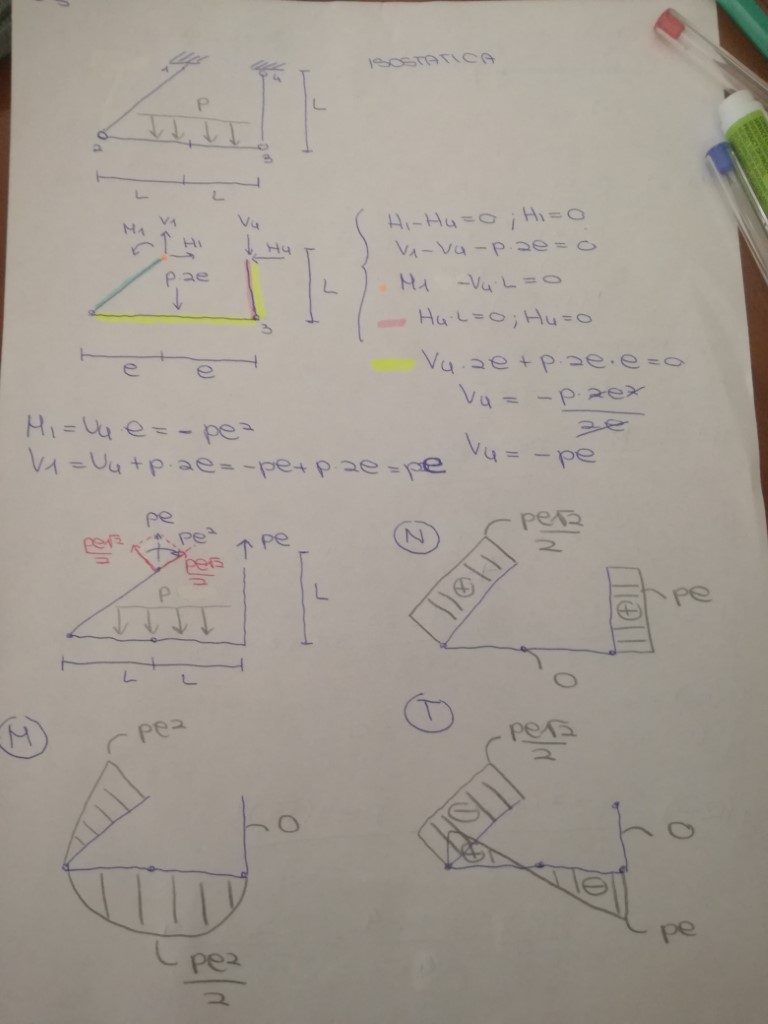 ISOSTATICA
1
4
P
L
2
3
L L
H1 V1 H1 V4 H4
p·2e
L
3
e e
H1-H4=0 ; H1=0
V1-V4-p·2e=0
M1 -V4·L=0
H4·L=0 ; H4=0
V4·2e+p·2e·e=0
V4 = -p·2e²/2e
V4 = -pe
M1 = V4·e = -pe²
V1 = V4+p·2e = -pe+p·2e = pe
pe
pe√2/2 pe² pe√2/2
pe
P
L
L L
N
pe√2/2
+
+
pe
0
M
pe²
0
pe²/2
T
pe√2/2
-
+
-
0
pe